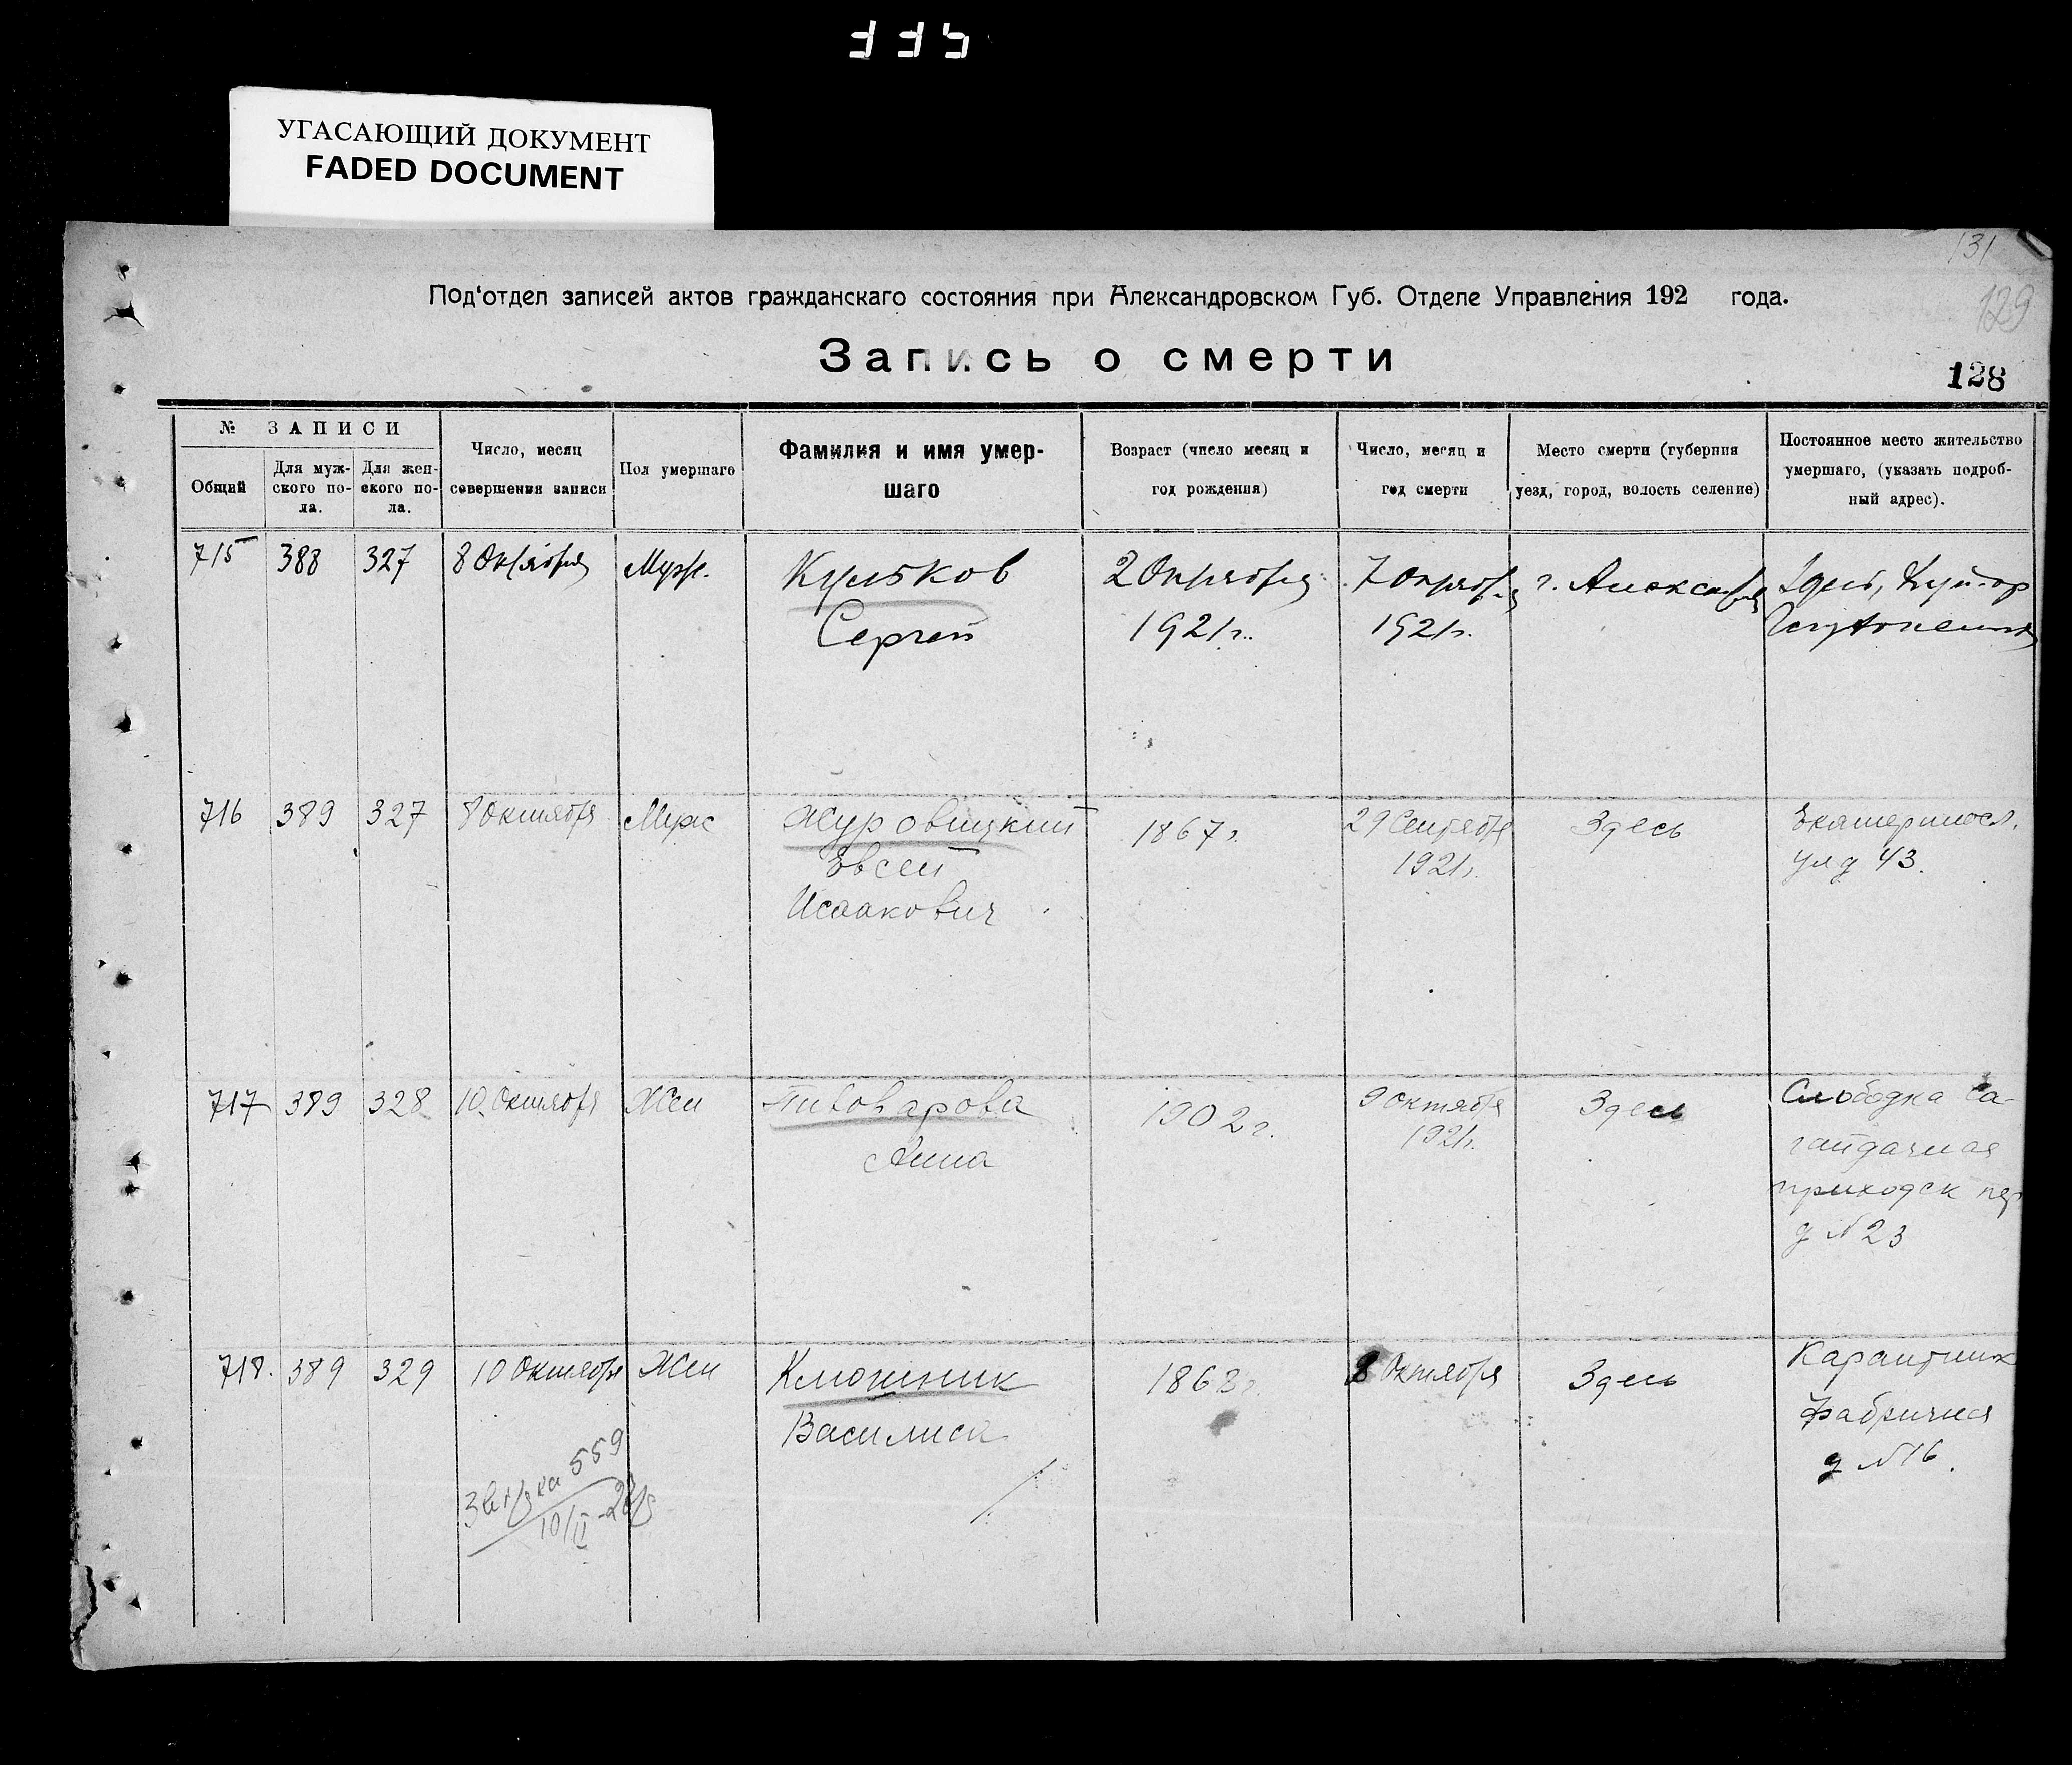 УГАСАЮЩИЙ ДОКУМЕНТ
FADED DOCUMENT
131
129
128
Под‘отдел записей актов гражданскаго состояния при Александровском Губ. Отделе Управления 192 года.
Запись о смерти
№ ЗАПИСИ
Общий
Для муж-
ского по-
ла.
Для жен-
ского по-
ла.
Число, месяц
совершения записи
Пол умершаго
Фамилия и имя умер-
шаго
Возраст (число месяц и
год рождения)
Число, месяц и
год смерти
Место смерти (губерния
уезд, город, волость селение)
Постоянное место жительство
умершаго, (указать подроб-
ный адрес).
715 388 327 8 Октября Муж. Кульков 2 Октября 7 октяб. г. Александр Здесь,
Сергей 1921 г. 1921г.
716 389 327 8 Октября Муж Журовицкий 1867 г. 29 Сентября Здесь Екатериносл.
Евсей 1921г. ул д 43.
Исаакович
717 389 328 10 Октября Жен Пивоварова 1902 г. 9 октября Здесь Слободка Са-
Анна 1921г. гайдачная
приходск пер
д N 23
718. 389 329 10 Октября Жен Клюшник 1868 г. 8 Октября Здесь Карантинк
Василиса Фабричная
д N 16.
559
10/II